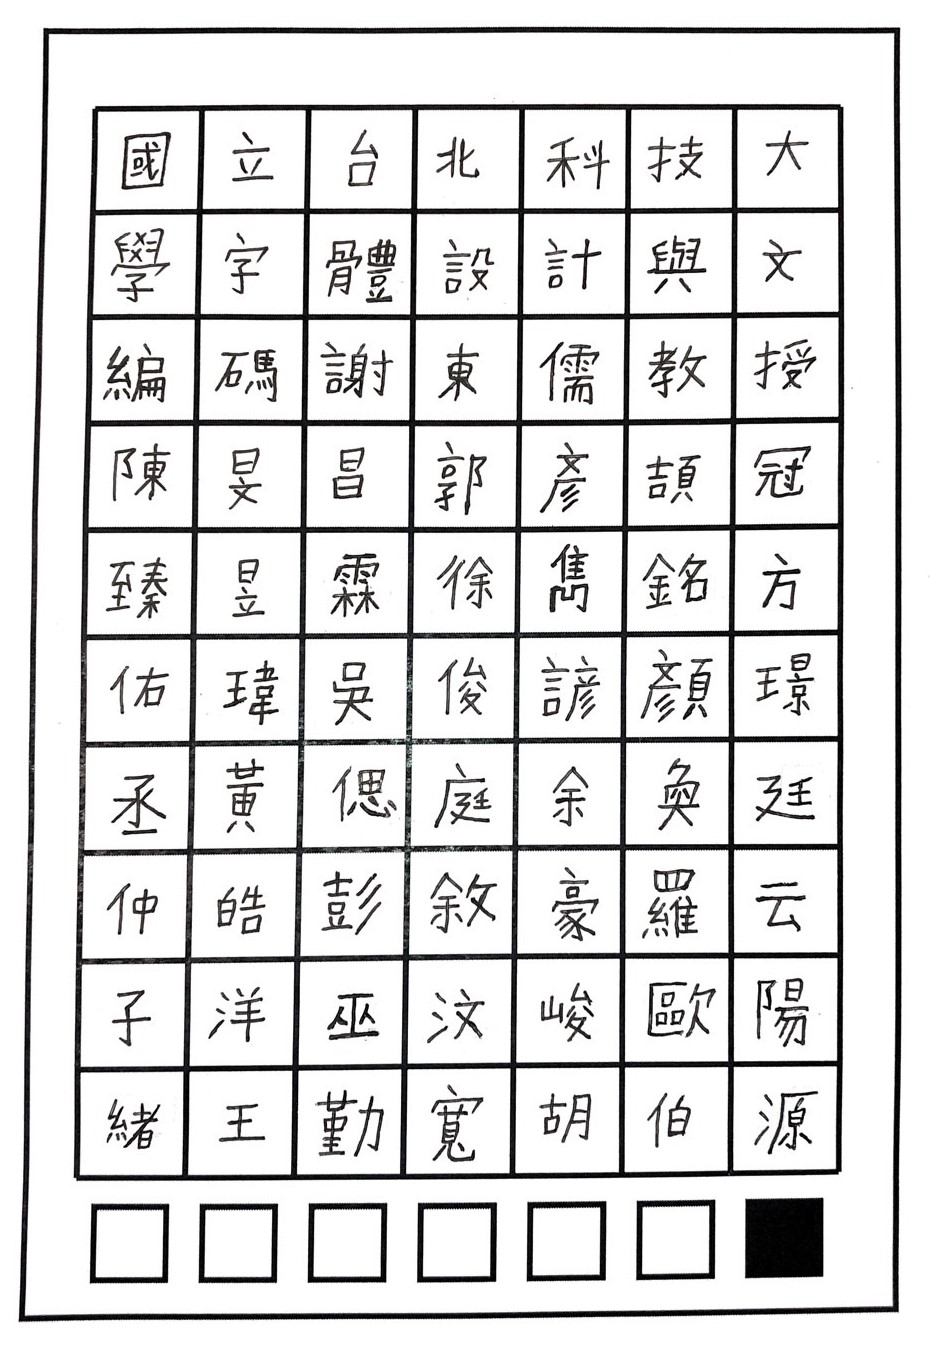 國立台北科技大
學字體設計與文
編碼謝東儒教授
陳旻昌郭彥頡冠
臻昱霖徐雋銘方
佑瑋吳俊諺顏璟
丞黃偲庭余奐廷
仲皓彭敘豪羅云
子洋巫汶峻歐陽
緒王勤寬胡伯源